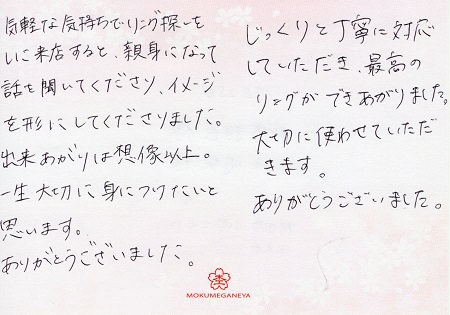 気軽な気持ちでリング探しを
しに来店すると、親身になって
話を聞いてくださり、イメージ
を形にしてくださりました。
出来あがりは想像以上。
一生大切に身につけたいと
思います。
ありがとうございました。
じっくりと丁寧に対応
していただき、最高の
リングができあがりました。
大切に使わせていただ
きます。
ありがとうございました。
MOKUMEGANEYA